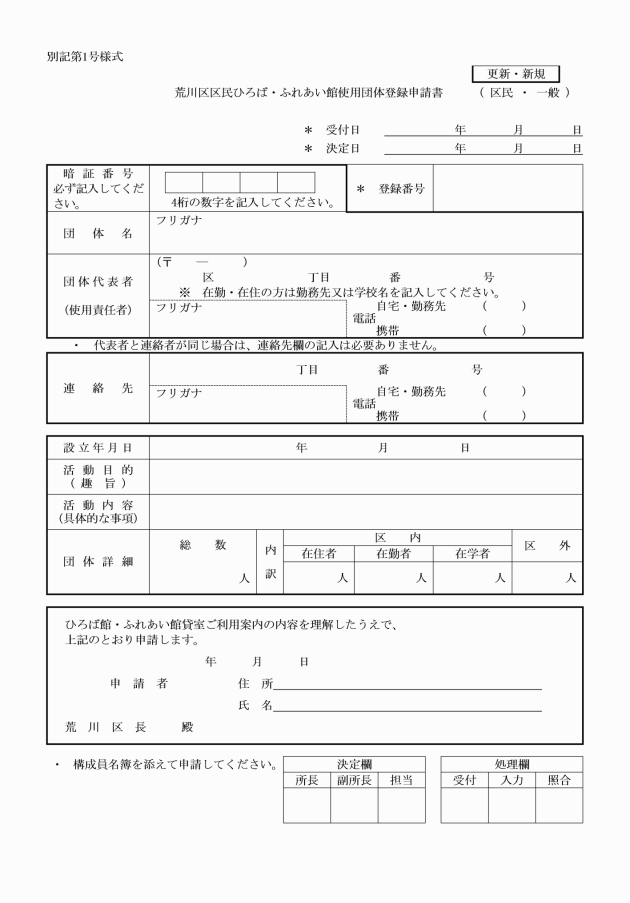 別記第1号様式
更新・新規
荒川区区民ひろば・ふれあい館使用団体登録申請書 （ 区民 ・ 一般 ）
＊ 受付日 年 月 日
＊ 決定日 年 月 日
暗証番号
必ず記入してくだ
さい。
4桁の数字を記入してください。
＊ 登録番号
団体名
フリガナ
団体代表者
(使用責任者)
(〒 ― )
区 丁目 番 号
※ 在勤・在住の方は勤務先又は学校名を記入してください。
フリガナ
電話
自宅・勤務先 ( )
携帯 ( )
・ 代表者と連絡者が同じ場合は、連絡先欄の記入は必要ありません。
連絡先
丁目 番 号
フリガナ
電話
自宅・勤務先 ( )
携帯 ( )
設立年月日 年 月 日
活動目的
(趣旨)
活動内容
(具体的な事項)
団体詳細
総数
人
内訳
区内
在住者 在勤者 在学者
人 人 人
区外
人
ひろば館・ふれあい館貸室ご利用案内の内容を理解したうえで、
上記のとおり申請します。
年 月 日
申請者 住所
氏名
荒川区長 殿
・ 構成員名簿を添えて申請してください。
決定欄
所長 副所長 担当
処理欄
受付 入力 照合